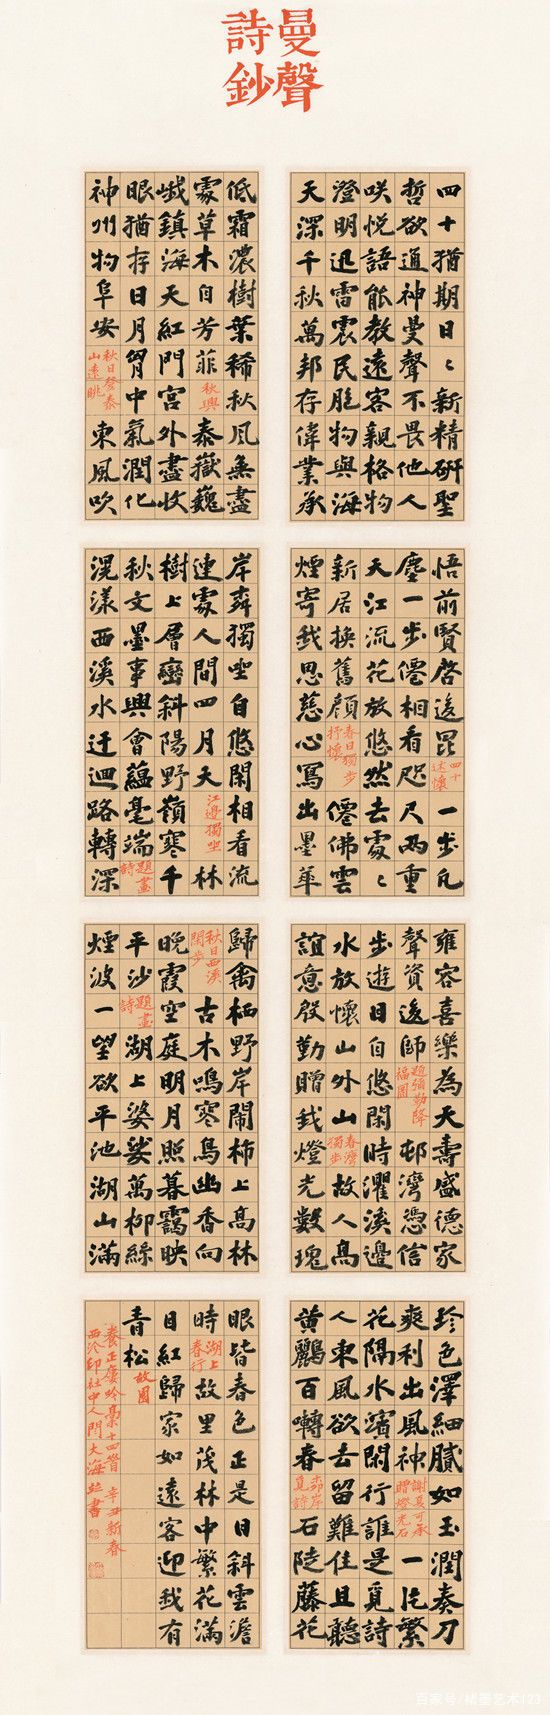 曼聲
詩鈔
四十猶期日〻新精研聖
哲欲通神曼聲不畏他人
咲悦語能教遠客親格物
澄明迅雷震民胞物與海
天深千秋萬邦存偉業承
悟前賢啓後昆 四十述懷 一步凡
塵一步僊相看咫尺兩重
天江流花放悠然去處〻
新居換舊顔 春日獨步抒懷 僊佛雲
煙寄我思慈心寫出墨華
雍容喜樂為天壽盛德家
聲資後師 題彌勒降福圖 邨灣憑信
步遊目自悠閑時濯溪邊
水放懷山外山 春灣獨步 故人高
誼意殷勤贈我燈光數瑰
珍色澤細膩如玉潤奏刀
爽利出風神 謝夏可承贈燈光石 一片繁
花隔水濱閑行誰是覓詩
人東風欲去留難住且聽
黄鸝百囀春 茆岸覓詩 石陡藤花
低霜濃樹葉稀秋風無盡
處草木自芳菲 秋興 泰嶽巍
峨鎮海天紅門宫外盡收
眼猶存日月胷中氣潤化
神州物阜安 秋日登泰山遠眺 東風吹
岸舞獨坐自悠閑相看流
連處人間四月天 江邊獨坐 林
樹上層巒斜陽野嶺寒千
秋文墨事興會藴毫端 題畫詩
滉漾西溪水迂迴路轉深
歸禽栖野岸閙柿上高林
秋日西溪閑步 古木鳴寒鳥幽香向
晚霞空庭明月照暮靄映
平沙 題畫詩 湖上婆娑萬柳絲
煙波一望欲平池湖山滿
眼皆春色正是日斜雲澹
時 湖上春行 故里茂林中繁花滿
目紅歸家如遠客迎我有
青松 故園
養正廔吟藁十四首 辛丑新春
西泠印社中人門大海並書
百家号/楮墨艺术123